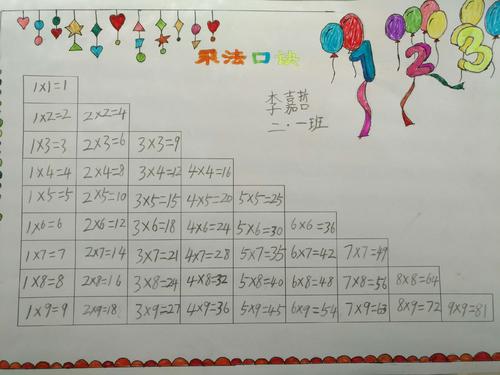 1 2 3
乘法口诀
李嘉哲
二·一班
1×1=1
1×2=2 2×2=4
1×3=3 2×3=6 3×3=9
1×4=4 2×4=8 3×4=12 4×4=16
1×5=5 2×5=10 3×5=15 4×5=20 5×5=25
1×6=6 2×6=12 3×6=18 4×6=24 5×6=30 6×6=36
1×7=7 2×7=14 3×7=21 4×7=28 5×7=35 6×7=42 7×7=49
1×8=8 2×8=16 3×8=24 4×8=32 5×8=40 6×8=48 7×8=56 8×8=64
1×9=9 2×9=18 3×9=27 4×9=36 5×9=45 6×9=54 7×9=63 8×9=72 9×9=81